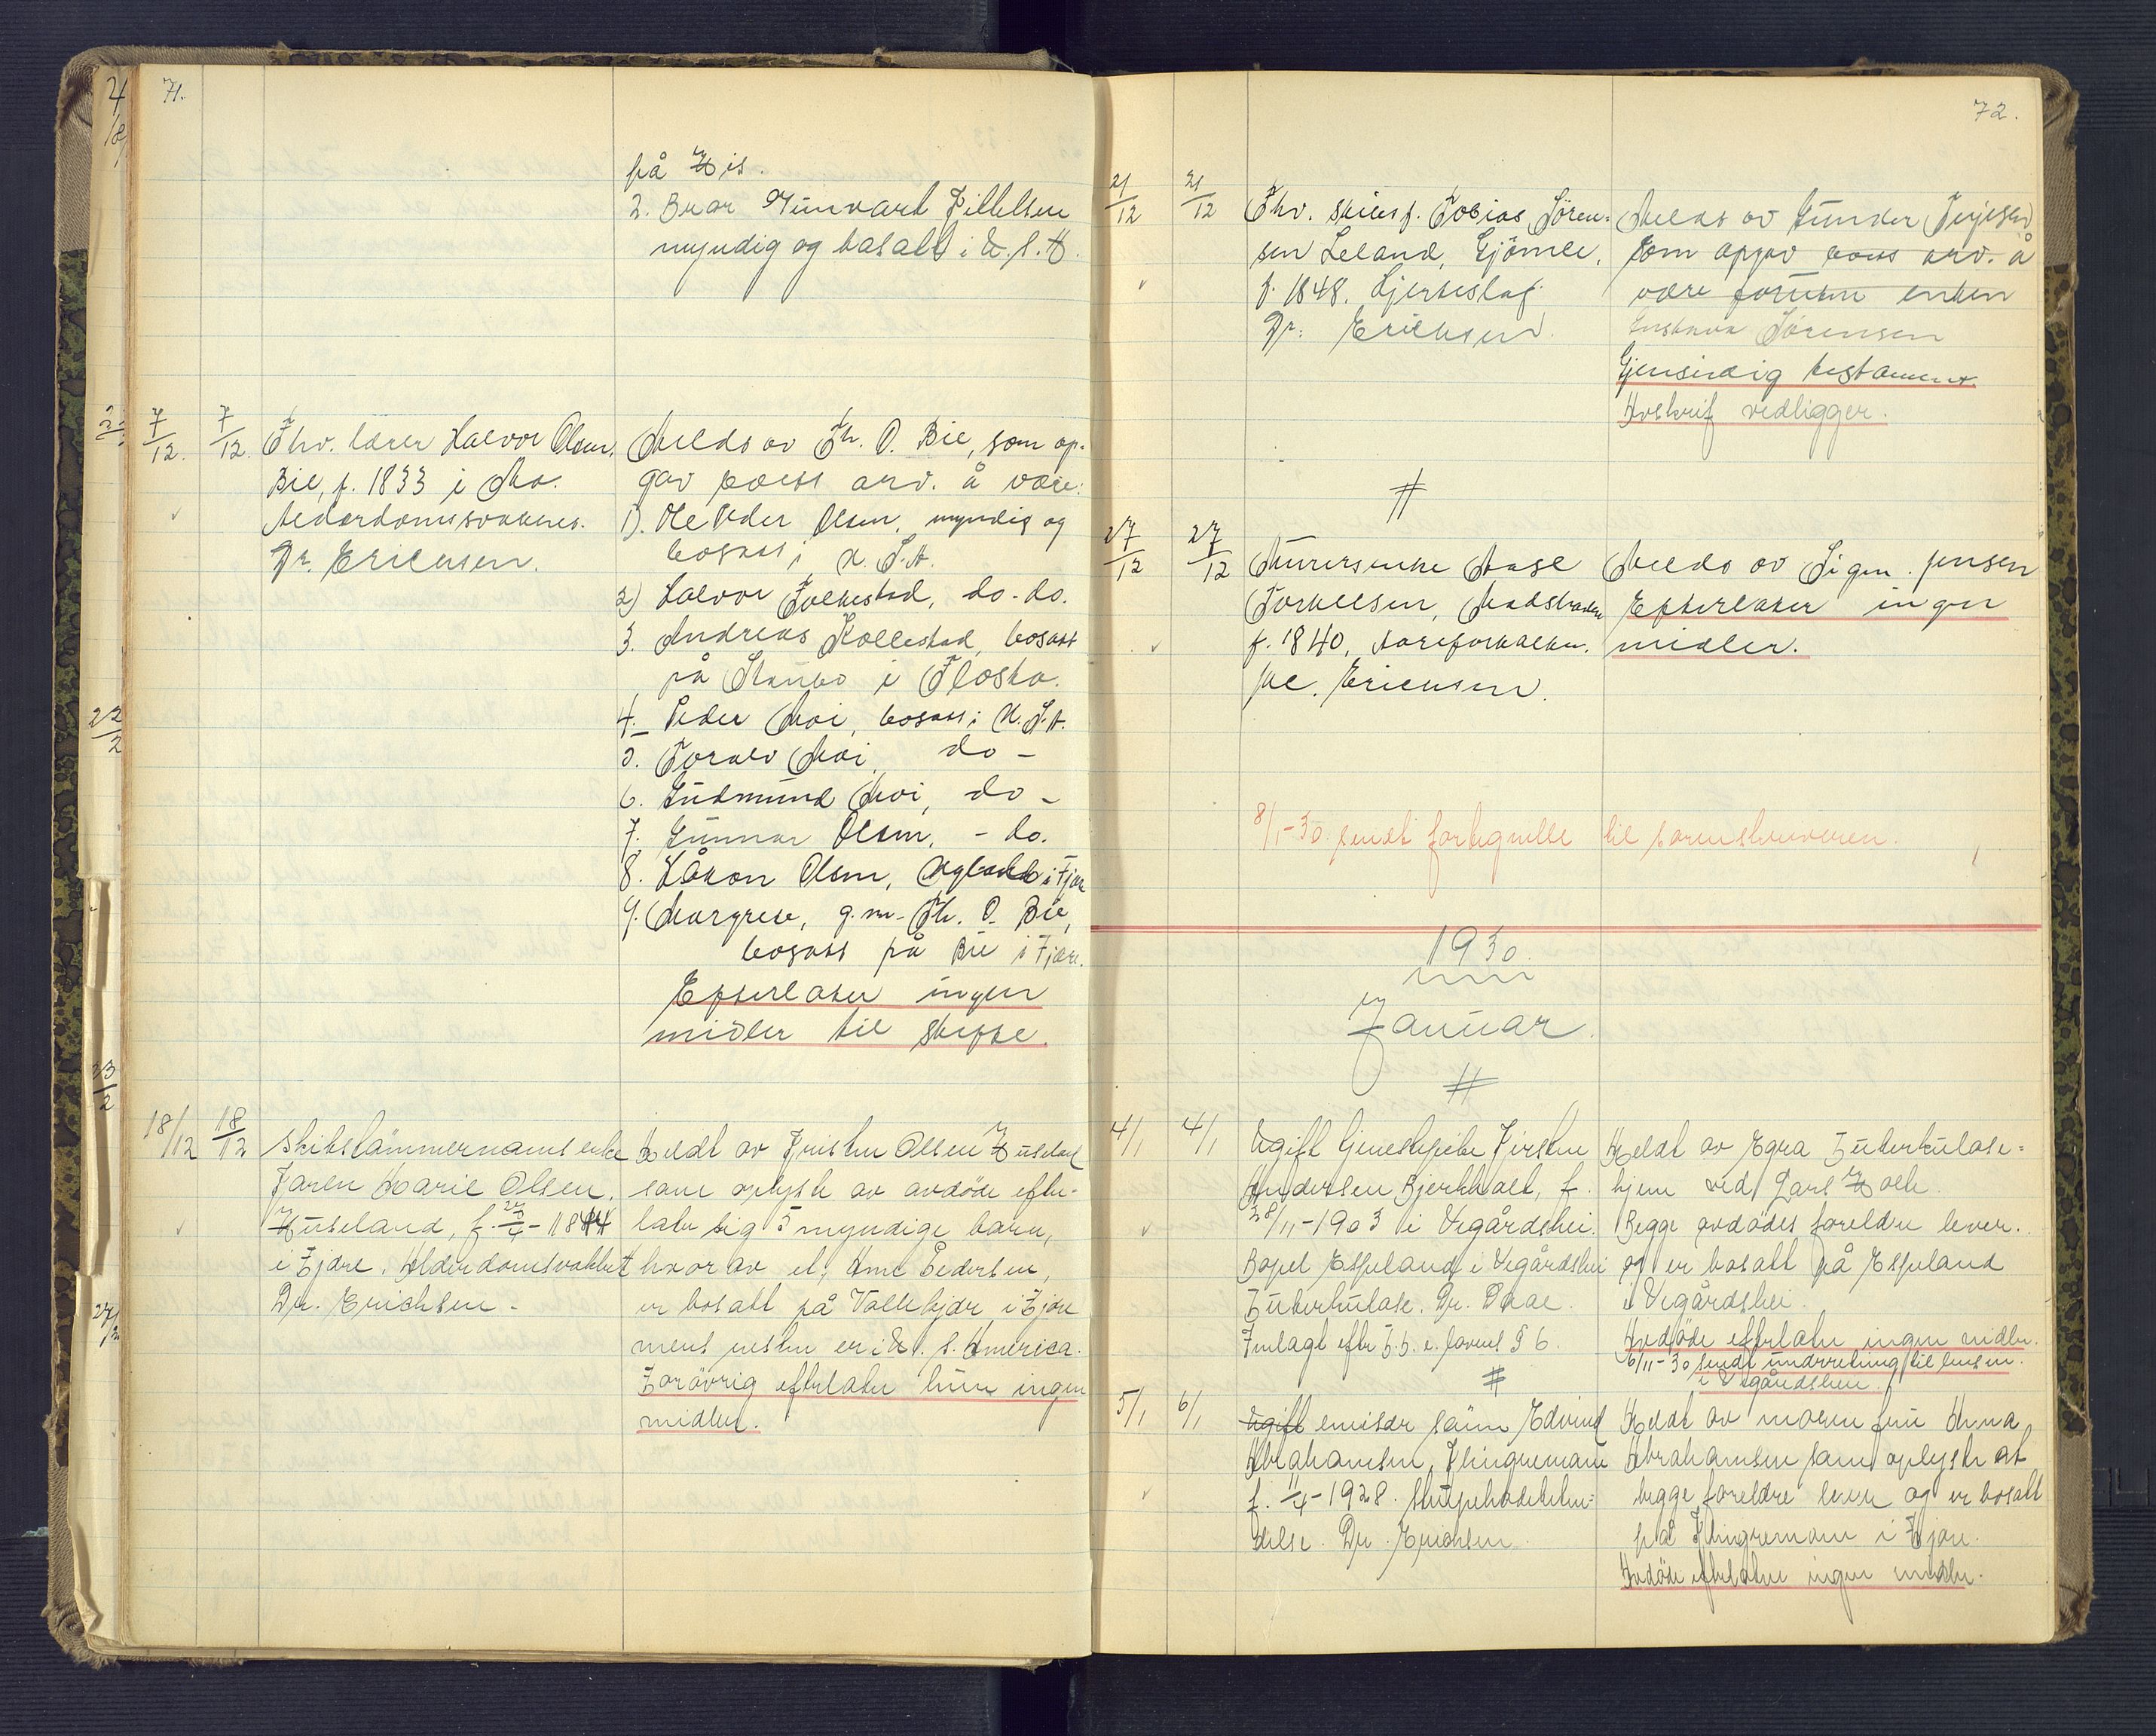 71.
på His.
2. Bror Gunvart Kittelsen
myndig og bosatt i U. S. A.
7/12. 7/12. Fhv. lærer Halvor Olsen,
Bie, f. 1833 i Mo.
Alderdomssvakhet.
Dr. Ericksen.
Meldt av Th. O. Bie, som op-
gav avd. arv. å være:
1). Ole Peder Olsen, myndig og
bosatt i U. S. A.
2) Halvor Folkestad, do. do.
3. Andreas Kollestad, bosatt
på Staubø i Flosta.
4. Peder Moi, bosatt i U. S. A.
5. Toralv Moi, do -
6. Gudmund Moi, do -
7. Gunnar Olsen, - do.
8. Håkon Olsen, i Fjære
9. Margrete, g. m. Th. O. Bie,
bosatt på Bie i Fjære.
Efterlater ingen
midler til skifte.
18/12 18/12 Skibstømmermans enke
Karen Marie Olsen,
Huseland, f. - 1844
i Fjære. Alderdomsvakhet
Dr. Erichsen -
Meldt av Kristen Olsen Huseland
som oplyste av avdöde efter-
later sig 5 myndige barn,
hvorav et, Ane Pedersen,
er bosatt på Vallekjær i Fjære
mens resten er i U. S. America.
Forövrig efterlater hun ingen
midler.
72.
21/12 21/12 Fhv. skibsf. Tobias Sören-
sen Leland, Gjömle,
f. 1848. Hjerteslag
Dr. Ericksen.
Meldt av Gunder Terjesen
som opgav avd. arv. å
være foruten enken
Gustava Sörensen
Gjensidig testament
Avskrift vedligger.
#
27/12 27/12 Murersenke Aase
Torkelsen,
f. 1840, Åreforkalkn.
Dr. Ericksen.
Meldt av Sign. Jensen
Efterlater ingen
midler.
8/1-30 sendt fortegnelse til sorenskriveren.
1930.
Januar.
#
4/1 4/1 Ugift tjenestepike Kirsten
Andersen Bjerkholt, f.
28/11-1903 i Vegårdshei.
Bopel Espeland i Vegårdshei
Tuberkulose. Dr. Daae.
Innlagt efter T. b. c. lovens § 6.
Meldt av Egra Tuberkulose-
hjem ved Lars Holte.
Begge avdödes foreldre lever.
og er bosatt på Espeland
i Vegårdshei.
Avdöde efterlater ingen midler.
6/11-30 sendt underretning til lensm.
i Vegårdshei.
#
5/1 6/1 Ugift emisær sönn Edvind
Abrahamsen, Klingremoen
f. 11/4-1928.
Dr. Erichsen.
Meldt av moren fru Anna
Abrahamsen som oplyste at
begge foreldre lever og er bosatt
på Klingremoen i Fjære.
Avdöde efterlater ingen midler.